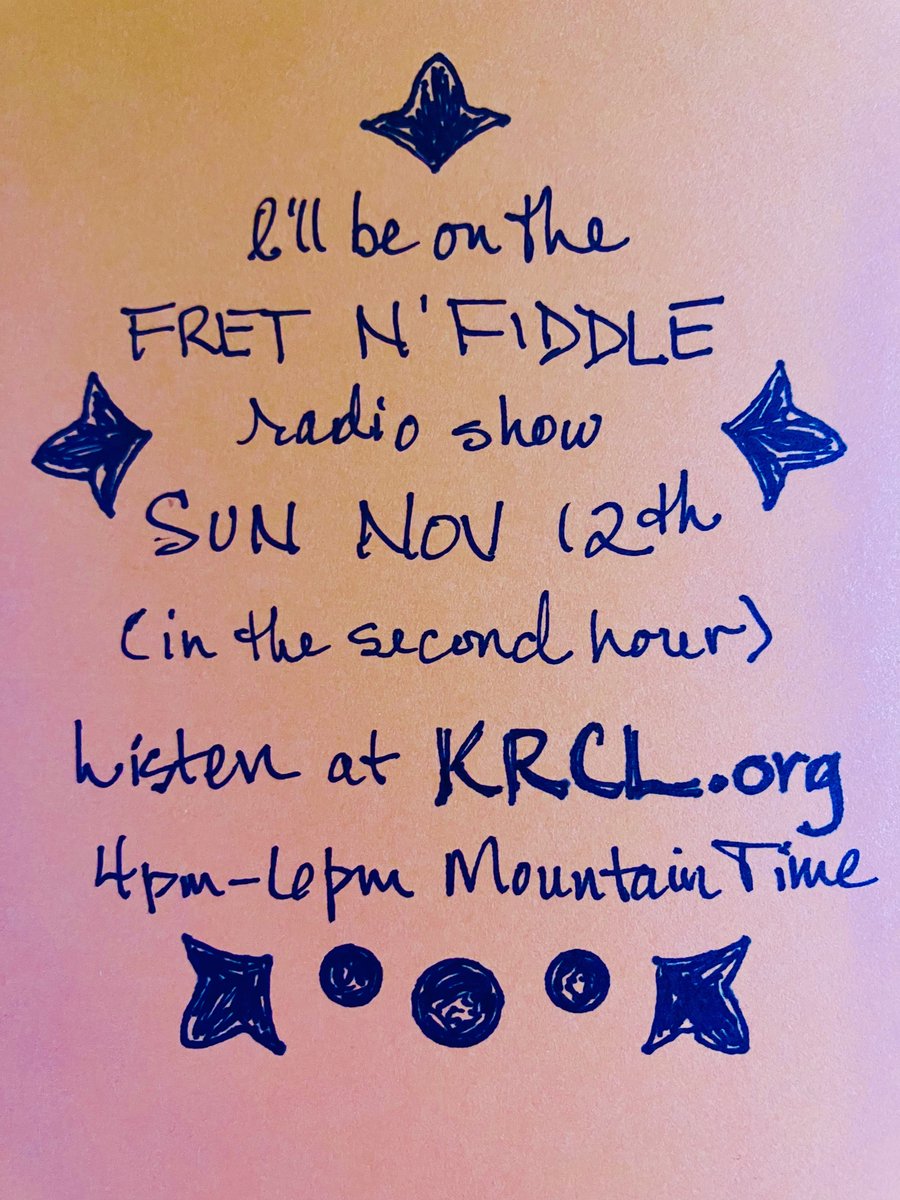 I'll be on the
FRET N' FIDDLE
radio show
SUN NOV 12th
(in the second hour)
Listen at KRCL.org
4pm-6pm Mountain Time